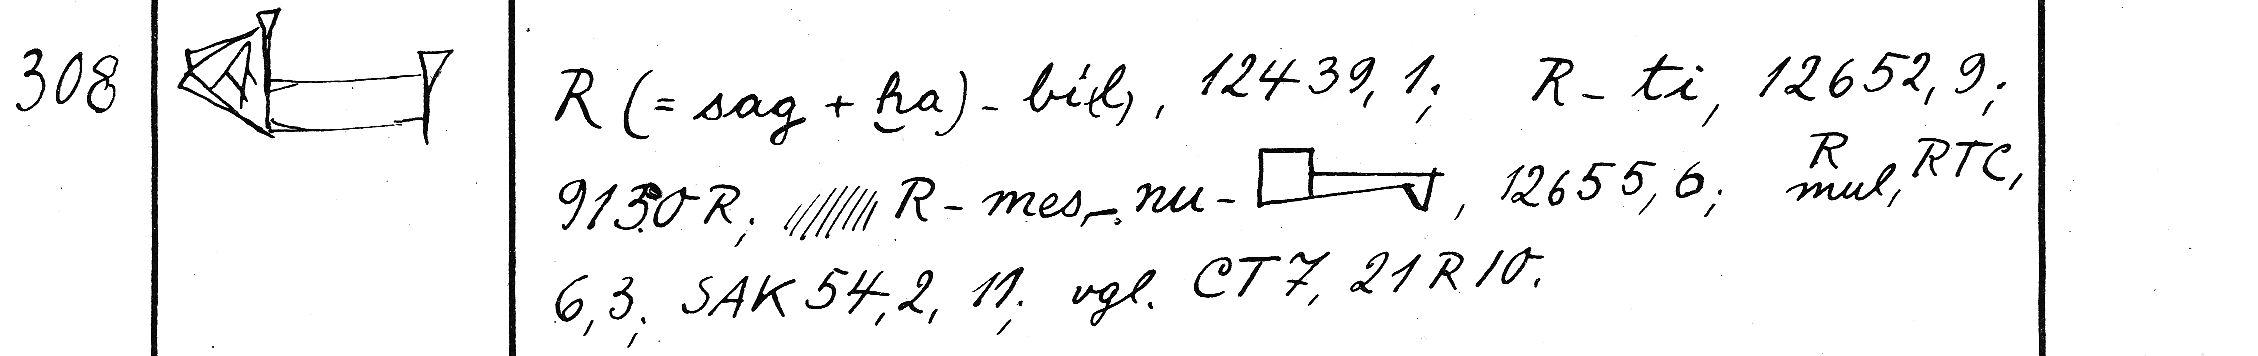 308 R (= sag + ḫa) - bil, 12439, 1; R - ti, 12652, 9;
9130 R; R - mes - nu - , 12655, 6; R mul, RTC,
6, 3; SAK 54, 2, 11; vgl. CT 7, 21 R 10.